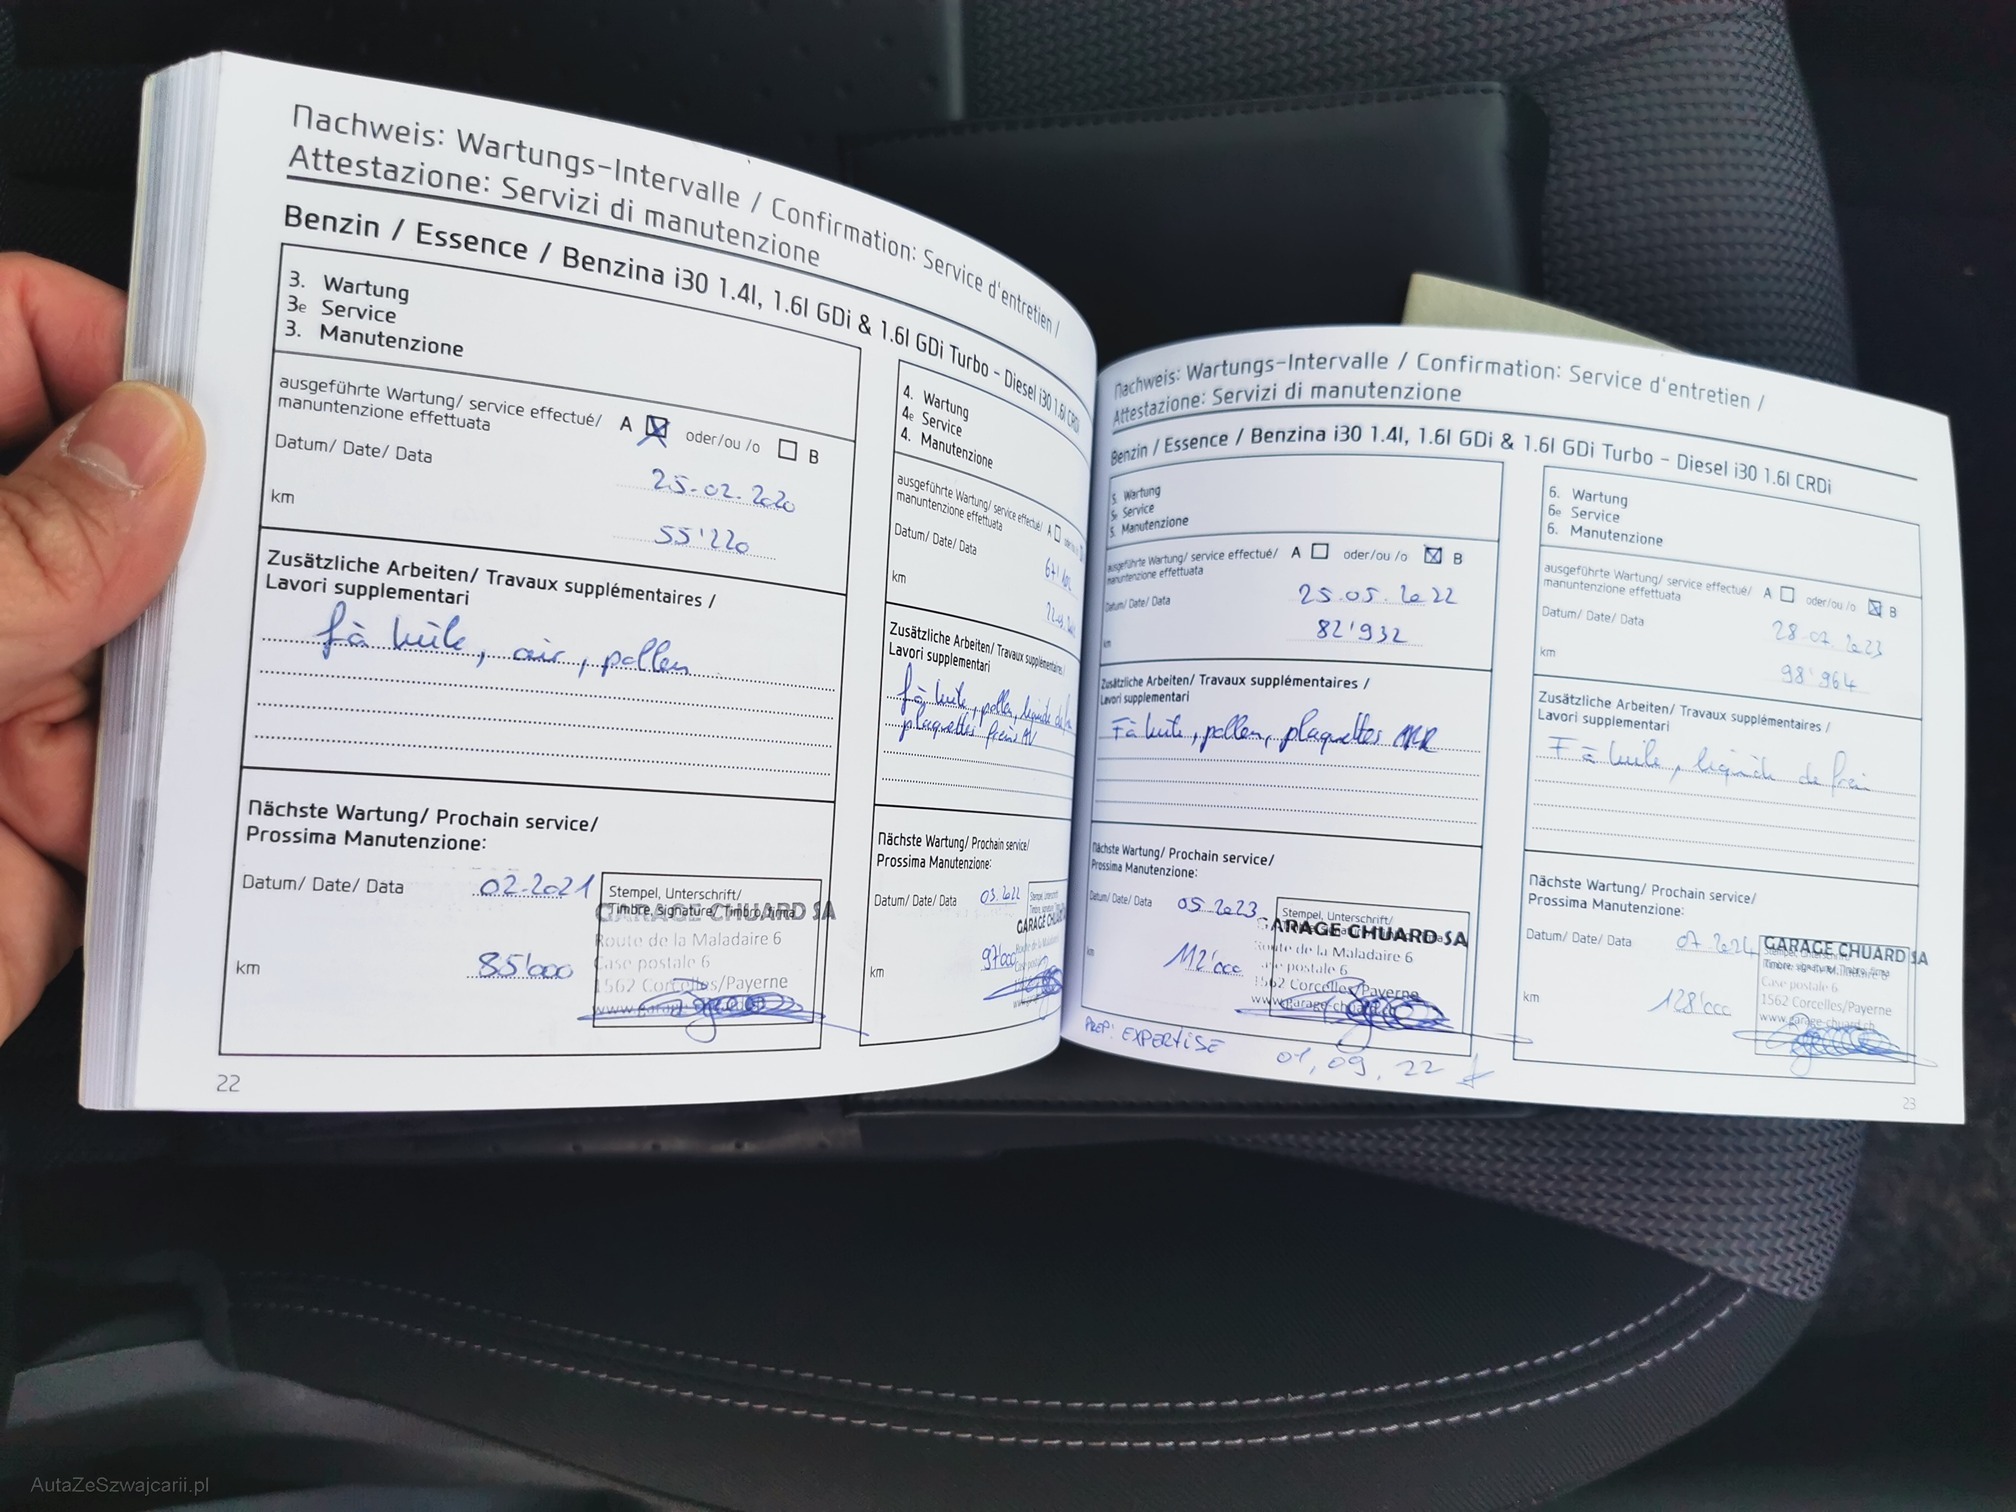 Nachweis: Wartungs-Intervalle / Confirmation: Service d'entretien /
Attestazione: Servizi di manutenzione
Benzin / Essence / Benzina i30 1.4l, 1.6l GDi & 1.6l GDi Turbo - Diesel i30 1.6l CRDi
3. Wartung
3e Service
3. Manutenzione
ausgeführte Wartung/ service effectué/ A oder/ou /o B
manuntenzione effettuata
Datum/ Date/ Data 25-02.2020
km 55'220
Zusätzliche Arbeiten/ Travaux supplémentaires /
Lavori supplementari
fà huile, air, pollen
Nächste Wartung/ Prochain service/
Prossima Manutenzione:
Datum/ Date/ Data 02-2021
km 85'000
Stempel, Unterschrift/
Timbre, signature/ Timbro, firma
GARAGE CHUARD SA
Route de la Maladaire 6
Case postale 6
1562 Corcelles/Payerne
4. Wartung
4e Service
4. Manutenzione
ausgeführte Wartung/ service effectué/ A
manuntenzione effettuata
Datum/ Date/ Data
km
Zusätzliche Arbeiten/ Travaux supplémentaires/
Lavori supplementari
fà huile, pollen, liquide de
plaquettes freins AV
Nächste Wartung/ Prochain service/
Prossima Manutenzione:
Datum/ Date/ Data 03.2022
km 97'000
GARAGE CHUARD
22
Nachweis: Wartungs-Intervalle / Confirmation: Service d'entretien /
Attestazione: Servizi di manutenzione
Benzin / Essence / Benzina i30 1.4l, 1.6l GDi & 1.6l GDi Turbo - Diesel i30 1.6l CRDi
5. Wartung
5e Service
5. Manutenzione
ausgeführte Wartung/ service effectué/ A oder/ou /o B
manuntenzione effettuata
Datum/ Date/ Data 25.05.2022
km 82'932
Zusätzliche Arbeiten/ Travaux supplémentaires /
Lavori supplementari
Fà huile, pollen, plaquettes ARR
Nächste Wartung/ Prochain service/
Prossima Manutenzione:
Datum/ Date/ Data 05.2023
km 112'000
Stempel, Unterschrift/
GARAGE CHUARD SA
Route de la Maladaire 6
Case postale 6
1562 Corcelles/Payerne
www.garage-chuard.ch
PREP: EXPERTISE 01,09,22
6. Wartung
6e Service
6. Manutenzione
ausgeführte Wartung/ service effectué/ A oder/ou /o B
manuntenzione effettuata
Datum/ Date/ Data 28-07.2023
km 98'964
Zusätzliche Arbeiten/ Travaux supplémentaires /
Lavori supplementari
Fà huile, liquide de frein
Nächste Wartung/ Prochain service/
Prossima Manutenzione:
Datum/ Date/ Data 07.2024
km 128'000
GARAGE CHUARD SA
Case postale 6
1562 Corcelles/Payerne
www.garage-chuard.ch
23
AutaZeSzwajcarii.pl